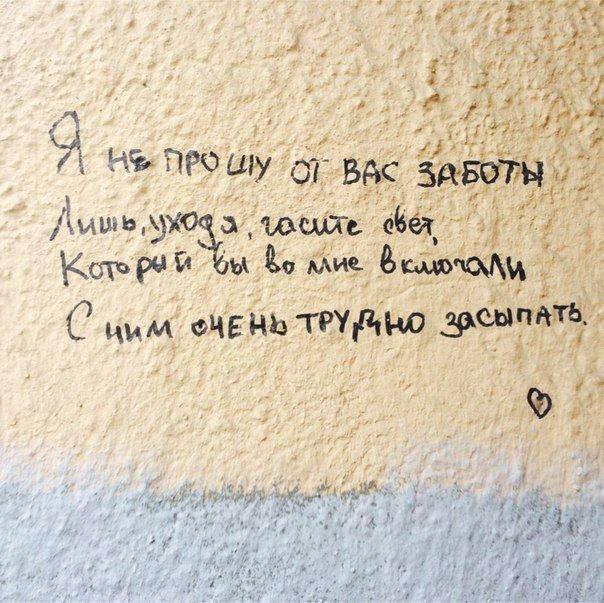 Я не прошу от вас заботы
Лишь, уходя, гасите свет,
Который вы во мне включали
С ним очень трудно засыпать.